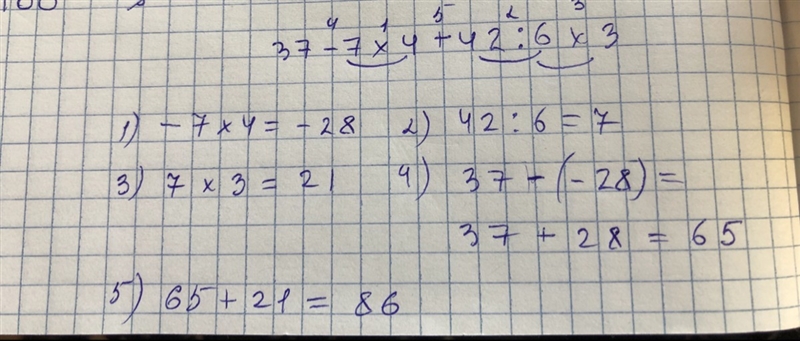 4 1 5 2 3
37 - 7 x 4 + 42 : 6 x 3
1) - 7 x 4 = - 28 2) 42 : 6 = 7
3) 7 x 3 = 21 4) 37 - (- 28) =
37 + 28 = 65
5) 65 + 21 = 86